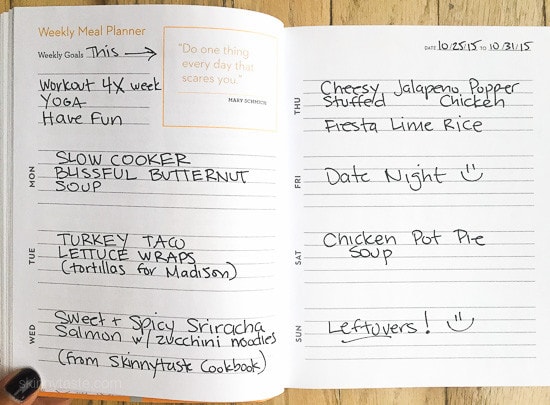 Weekly Meal Planner
Weekly Goals This →
"Do one thing
every day that
scares you."
MARY SCHMICH
Workout 4X week
YOGA
Have Fun
MON
SLOW COOKER
BLISSFUL BUTTERNUT
SOUP
TUE
TURKEY TACO
LETTUCE WRAPS
(tortillas for Madison)
WED
Sweet + Spicy Sriracha
Salmon w/ zucchini noodles
(from Skinnytaste Cookbook)
skinnytaste.com
DATE 10/25/15 TO 10/31/15
THU
Cheesy Jalapeno Popper
Stuffed Chicken
Fiesta Lime Rice
FRI
Date Night
SAT
Chicken Pot Pie
Soup
SUN
Leftovers!